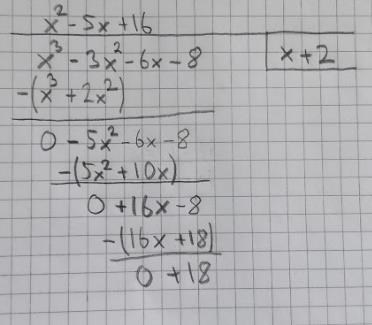 x² - 5x + 16
x³ - 3x² - 6x - 8 x + 2
-(x³ + 2x²)
0 - 5x² - 6x - 8
-(5x² + 10x)
0 + 16x - 8
-(16x + 18)
0 + 18